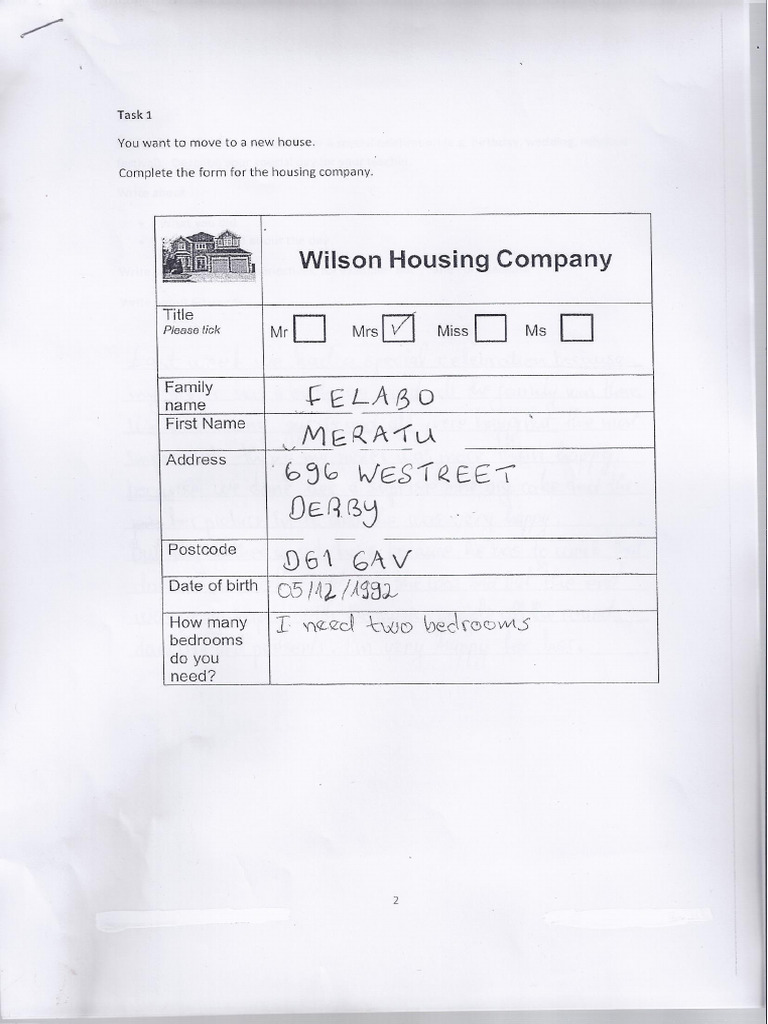 Task 1
You want to move to a new house.
Complete the form for the housing company.
Wilson Housing Company
Title
Please tick
Mr Mrs ✓ Miss Ms
Family name FELABO
First Name MERATU
Address 696 WESTREET
DERBY
Postcode DG1 6AV
Date of birth 05/12/1992
How many bedrooms do you need? I need two bedrooms
2